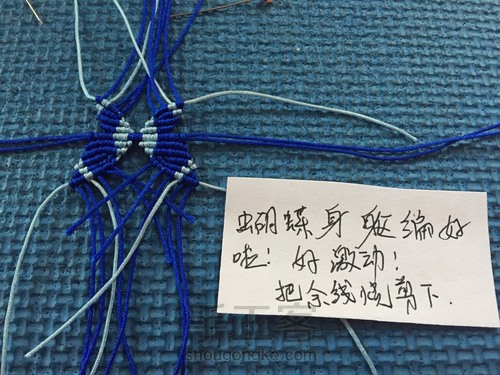 蝴蝶身躯编好
啦！好激动！
把余线烧剪下.
手工客
shougongke.com